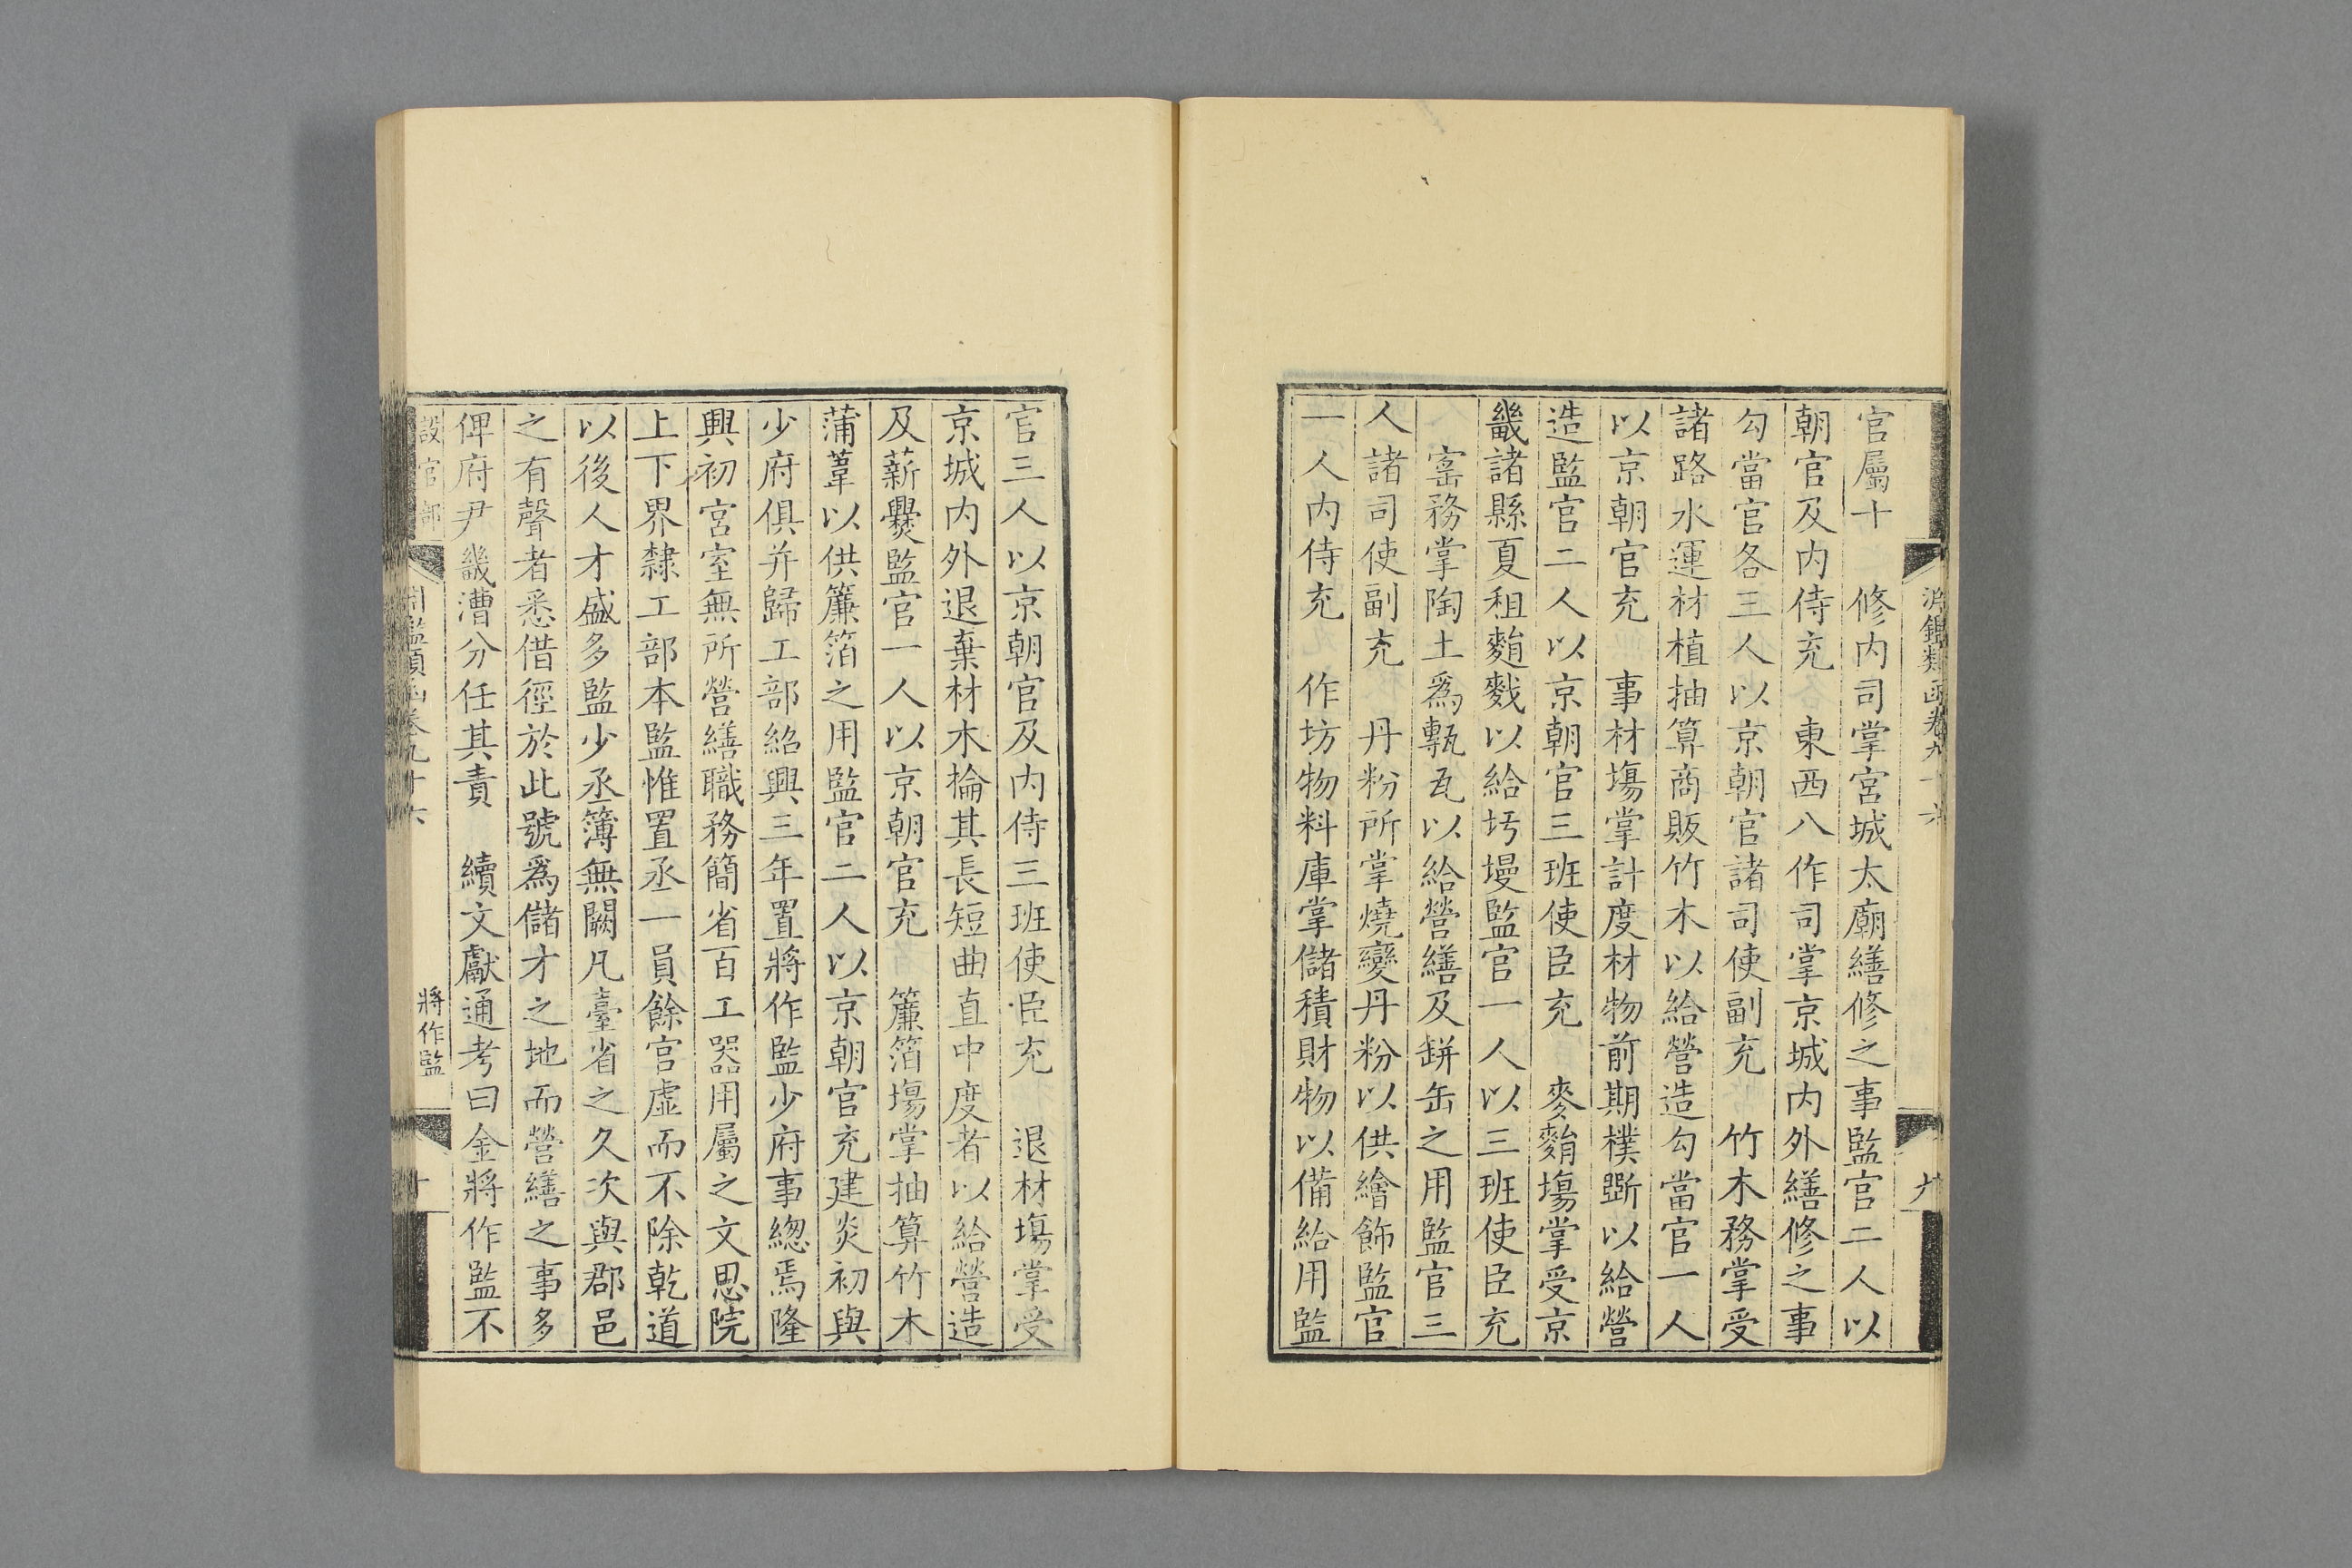 官屬十　修内司掌宮城太廟繕修之事監官二人以
朝官及内侍充　東西八作司掌京城内外繕修之事
勾當官各三人以京朝官諸司使副充　竹木務掌受
諸路水運材植抽算商販竹木以給營造勾當官一人
以京朝官充　事材塲掌計度材物前期樸斲以給營
造監官二人以京朝官三班使臣充　麥䴬塲掌受京
畿諸縣夏租䴬䴰以給圬墁監官一人以三班使臣充
　窰務掌陶土爲甎瓦以給營繕及缾缶之用監官三
人諸司使副充　丹粉所掌燒變丹粉以供繪飾監官
一人内侍充　作坊物料庫掌儲積財物以備給用監
官三人以京朝官及内侍三班使臣充　退材塲掌受
京城内外退棄材木掄其長短曲直中度者以給營造
及薪爨監官一人以京朝官充　簾箔塲掌抽算竹木
蒲葦以供簾箔之用監官二人以京朝官充建炎初與
少府俱并歸工部紹興三年置將作監少府事緫焉隆
興初宮室無所營繕職務簡省百工器用屬之文思院
上下界隸工部本監惟置丞一員餘官虛而不除乾道
以後人才盛多監少丞簿無闕凡臺省之久次與郡邑
之有聲者悉借徑於此號爲儲才之地而營繕之事多
俾府尹畿漕分任其責　續文獻通考曰金將作監不
設官部
將作監